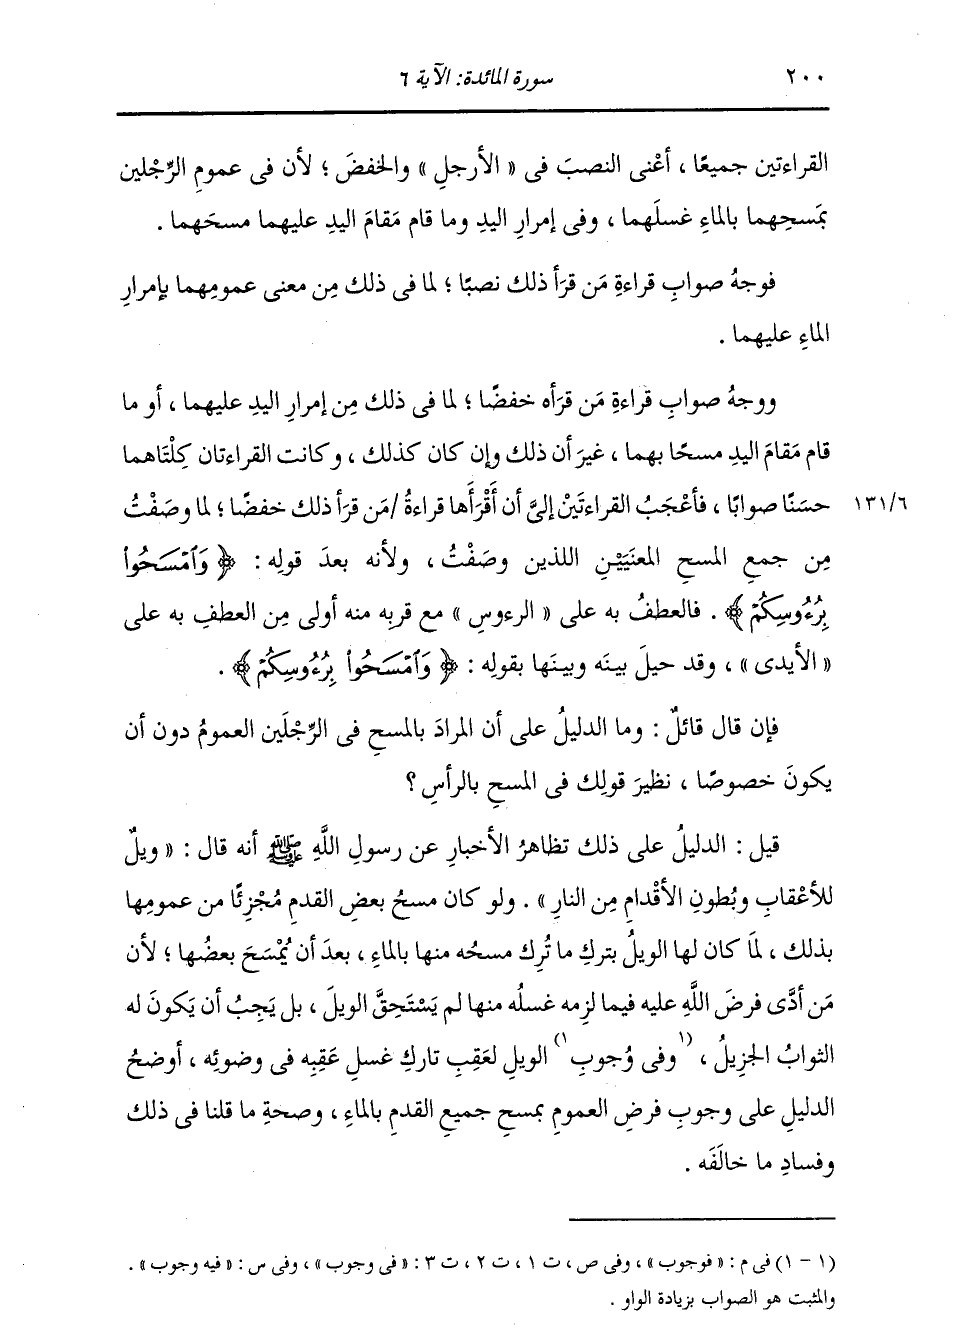 ٢٠٠ سورة المائدة: الآية ٦
القراءتين جميعًا ، أعْنى النصبَ فى « الأرجلِ » والخفضَ ؛ لأن فى عمومِ الرِّجْلين
بمَسحِهما بالماءِ غسلَهما ، وفى إمرارِ اليدِ وما قام مَقامَ اليدِ عليهما مسحَهما .
فوجهُ صوابِ قراءةِ مَن قرَأ ذلك نصبًا ؛ لما فى ذلك مِن معنى عمومِهما بإمرارِ
الماءِ عليهما .
ووجهُ صوابِ قراءةِ مَن قرَأه خفضًا ؛ لما فى ذلك مِن إمرارِ اليدِ عليهما ، أو ما
قام مَقامَ اليدِ مسحًا بهما ، غيرَ أن ذلك وإن كان كذلك ، وكانت القراءتان كِلْتاهما
١٣١/٦ حسَنًا صوابًا ، فأعْجَبُ القراءتَيْن إلىَّ أن أَقْرَأَها قراءةُ /مَن قرَأ ذلك خفضًا ؛ لما وصَفْتُ
مِن جمعِ المسحِ المعنَيَيْنِ اللذين وصَفْتُ ، ولأنه بعدَ قولِه : ﴿ وَٱمْسَحُوا۟
بِرُءُوسِكُمْ ﴾ . فالعطفُ به على « الرءوسِ » مع قربِه منه أولى مِن العطفِ به على
« الأيدى » ، وقد حيلَ بينَه وبينَها بقولِه : ﴿ وَٱمْسَحُوا۟ بِرُءُوسِكُمْ ﴾ .
فإن قال قائلٌ : وما الدليلُ على أن المرادَ بالمسحِ فى الرِّجْلَين العمومُ دون أن
يكونَ خصوصًا ، نظيرَ قولِك فى المسحِ بالرأسِ ؟
قيل : الدليلُ على ذلك تظاهرُ الأخبارِ عن رسولِ اللَّهِ ﷺ أنه قال : « ويلٌ
للأعْقابِ وبُطونِ الأقْدامِ مِن النارِ » . ولو كان مسحُ بعضِ القدمِ مُجْزِئًا من عمومِها
بذلك ، لَما كان لها الويلُ بتركِ ما تُرِك مسحُه منها بالماءِ ، بعدَ أن يُمْسَحَ بعضُها ؛ لأن
مَن أدَّى فرضَ اللَّهِ عليه فيما لزِمه غسلُه منها لم يَسْتَحِقَّ الويلَ ، بل يَجِبُ أن يَكونَ له
الثوابُ الجزيلُ ، (١وفى وُجوبِ١) الويلِ لعَقِبِ تاركِ غسلِ عَقِبِه فى وضوئِه ، أوضحُ
الدليلِ على وجوبِ فرضِ العمومِ بمسحِ جميعِ القدمِ بالماءِ ، وصحةِ ما قلنا فى ذلك
وفسادِ ما خالَفَه .
(١ - ١) فى م : « فوجوب » ، وفى ص ، ت ١ ، ت ٢ ، ت ٣ : « فى وجوب » ، وفى س : « فيه وجوب » .
والمثبت هو الصواب بزيادة الواو .